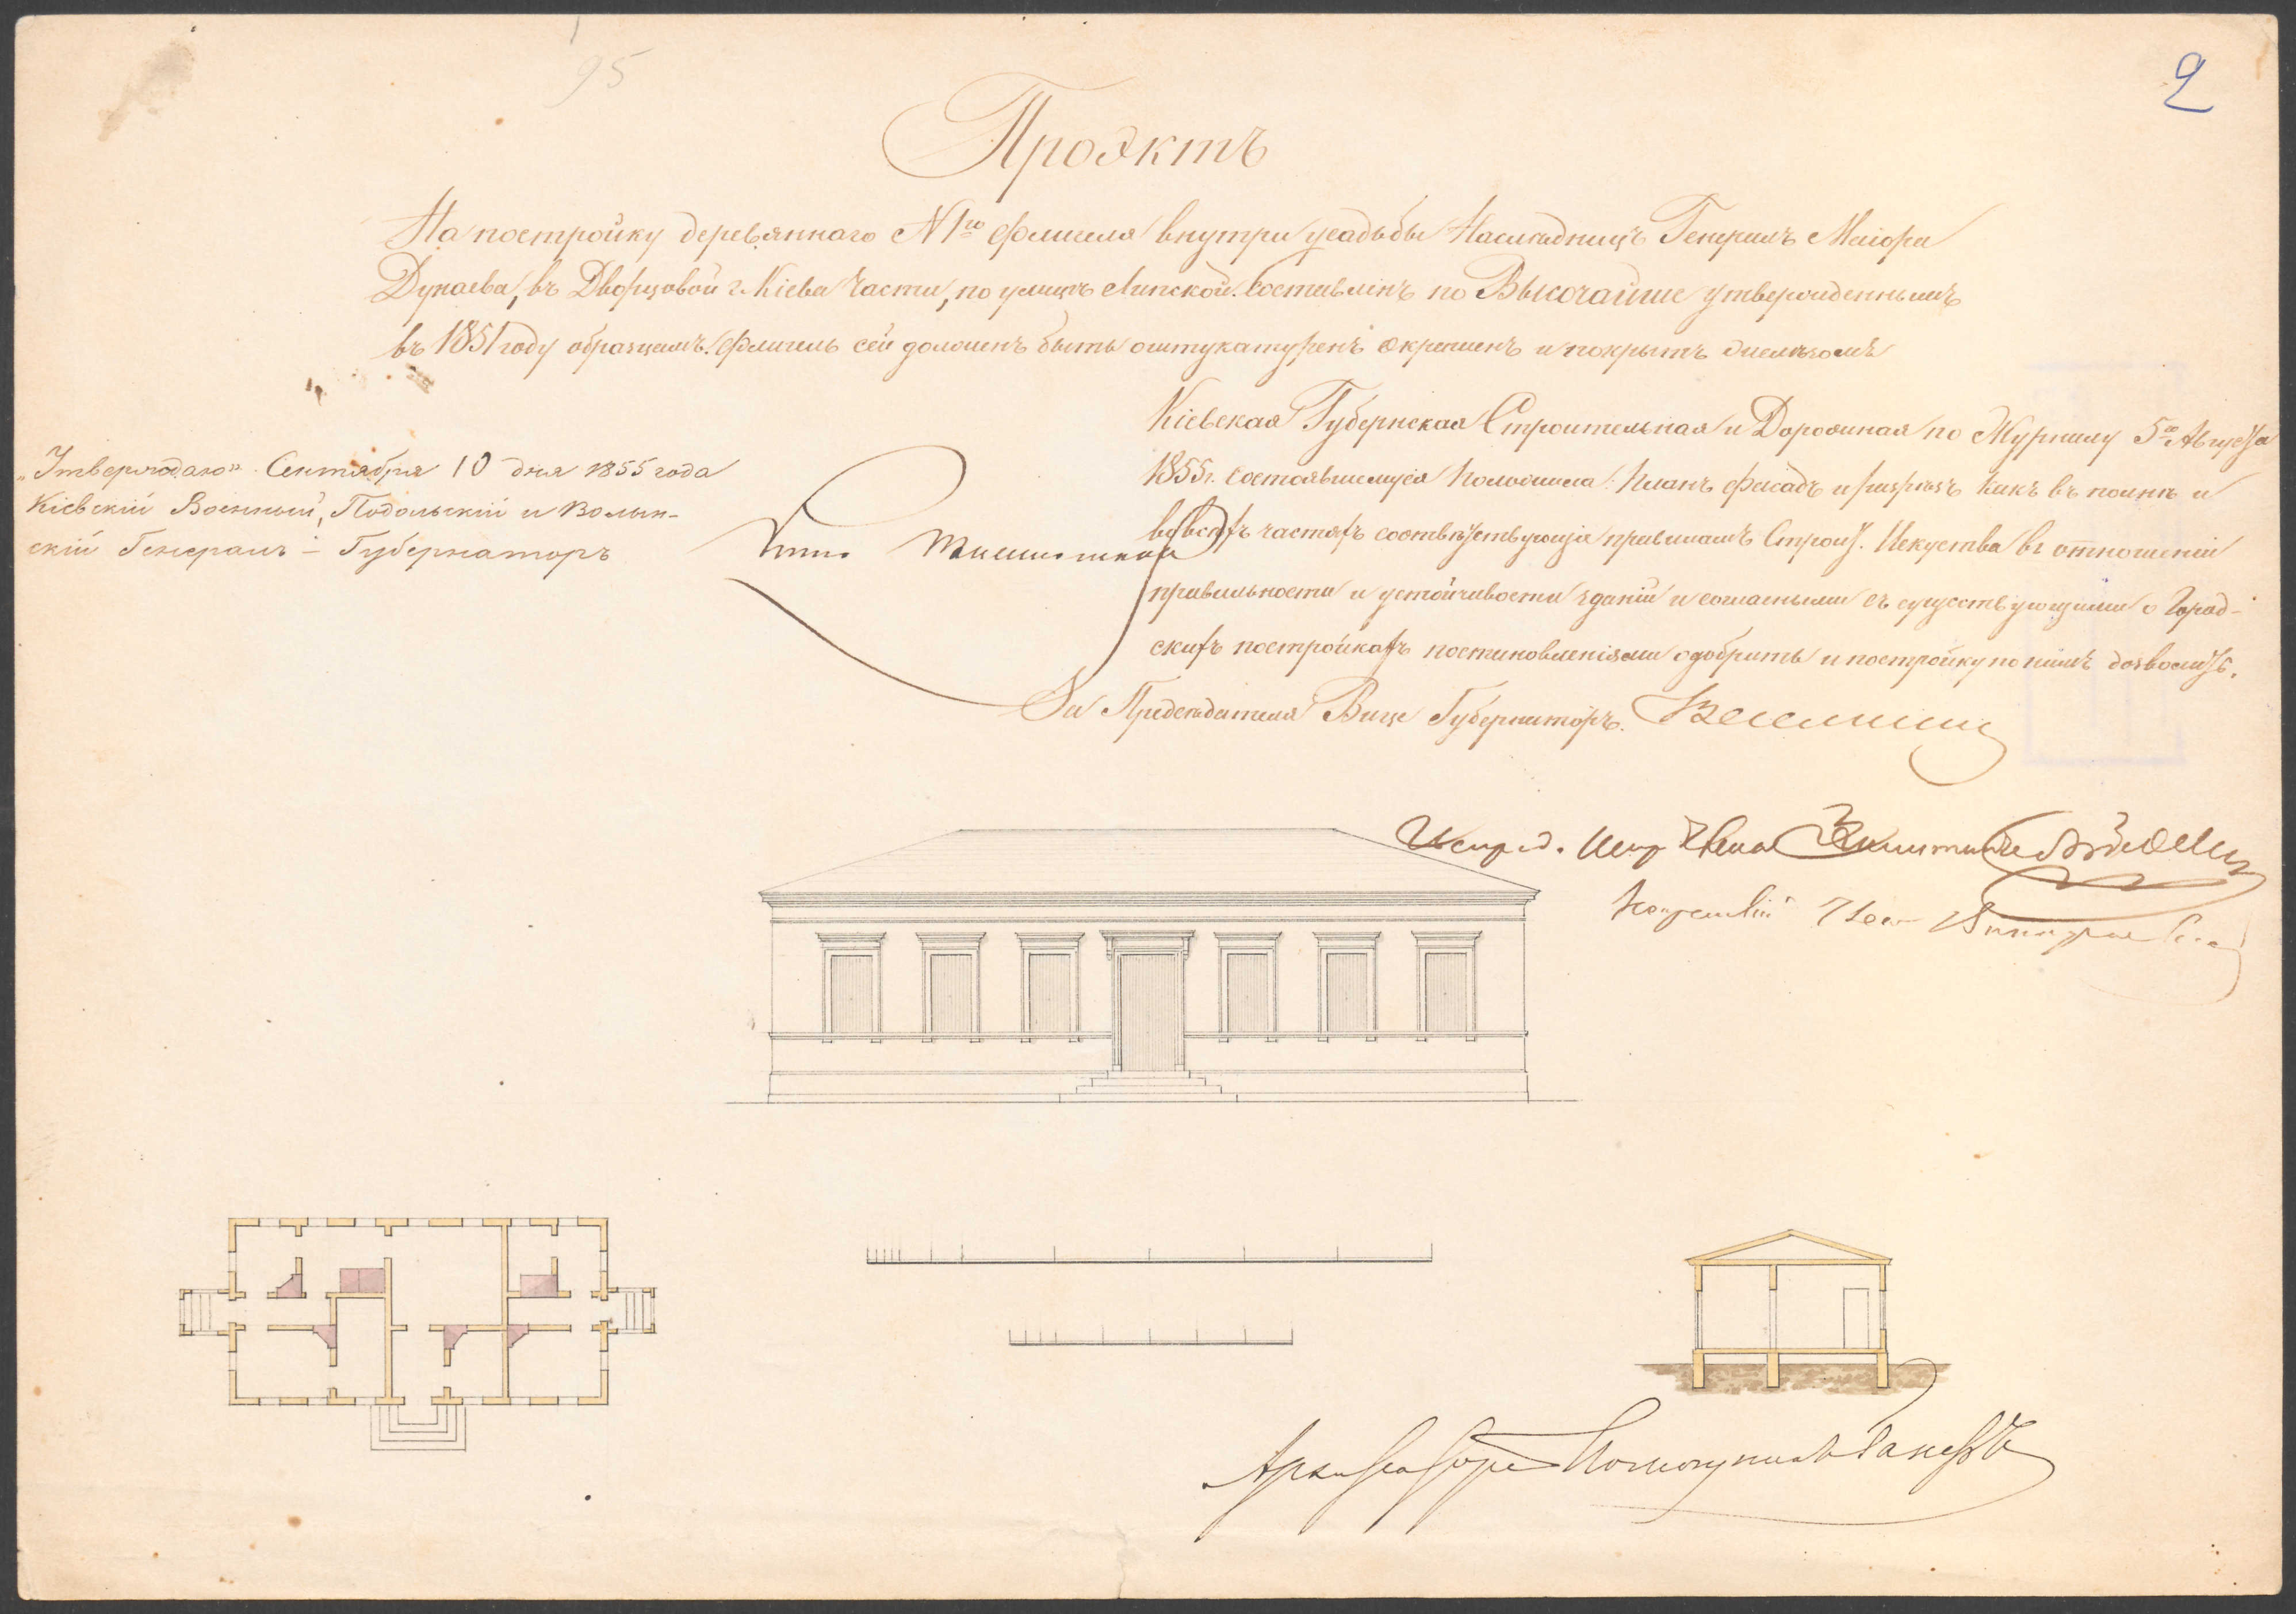 95
2
Проэктъ
На постройку деревяннаго № 1го флигеля внутри усадьбы Наслѣдницъ Генералъ Маіора
Дунаева, въ Дворцовой г. Кіева Части, по улицѣ Липской. Составленъ по Высочайше утвержденнымъ
въ 1851 году образцамъ. Флигель сей долженъ быть оштукатуренъ окрашенъ и покрытъ желѣзомъ
Кіевская Губернская Строительная и Дорожная по Журналу 5го Августа
1855 г. состоявшемуся Положила: Планъ фасадъ и разрѣзъ какъ въ полнѣ и
во всехъ частяхъ соотвѣтствующія правиламъ Строит. Искуства въ отношеніи
правильности и устойчивости зданій и согласными съ существующими о Город-
скихъ постройкахъ постановленіями одобрить и постройку по нимъ дозволить.
За Предсѣдателя Вице Губернаторъ.
„Утверждаю" Сентября 10 дня 1855 года
Кіевскій Военный, Подольскій и Волын-
скій Генералъ-Губернаторъ
Архитекторъ